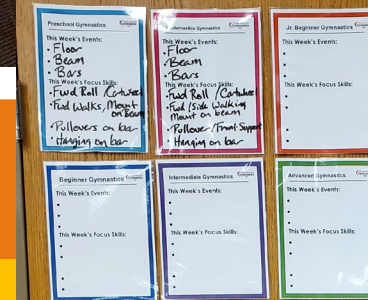 Preschool Gymnastics
This Week's Events:
• Floor
• Beam
• Bars
This Week's Focus Skills:
• Fwd Roll / Cartwheel
• Fwd Walks, Mount
on Beam
• Pullovers on bar
• Hanging on bar
Gymnastics
This Week's Events:
• Floor
• Beam
• Bars
This Week's Focus Skills:
• Fwd Roll / Cartwheel
• Fwd / Side Walking
Mount on beam
• Pullover / Front Support
• Hanging on bar
Jr. Beginner Gymnastics
This Week's Events:
•
•
•
This Week's Focus Skills:
•
•
•
•
Beginner Gymnastics
This Week's Events:
•
•
•
This Week's Focus Skills:
•
•
•
•
Intermediate Gymnastics
This Week's Events:
•
•
•
This Week's Focus Skills:
•
•
•
•
Advanced Gymnastics
This Week's Events:
•
•
•
This Week's Focus Skills:
•
•
•
•